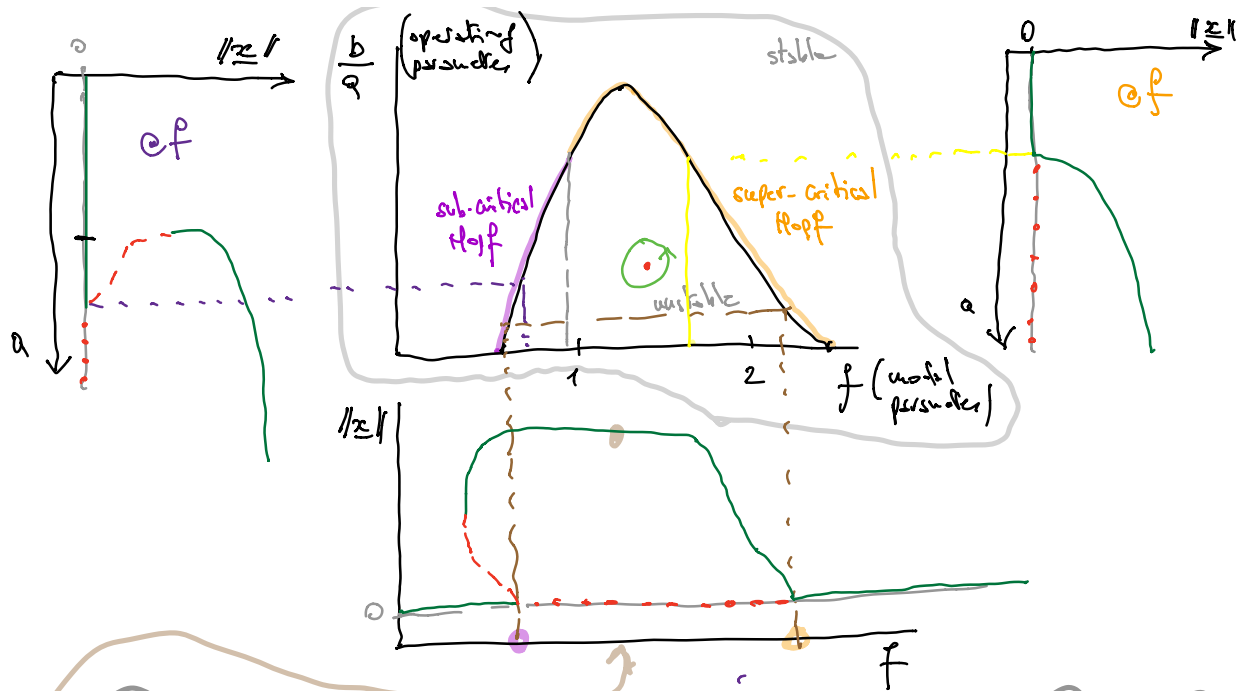 0
||x||
@f
a
b
a
(operating
parameter)
stable
sub-critical
Hopf
super-critical
Hopf
unstable
1
2
f (model
parameter)
0
||x||
@f
a
||x||
0
f